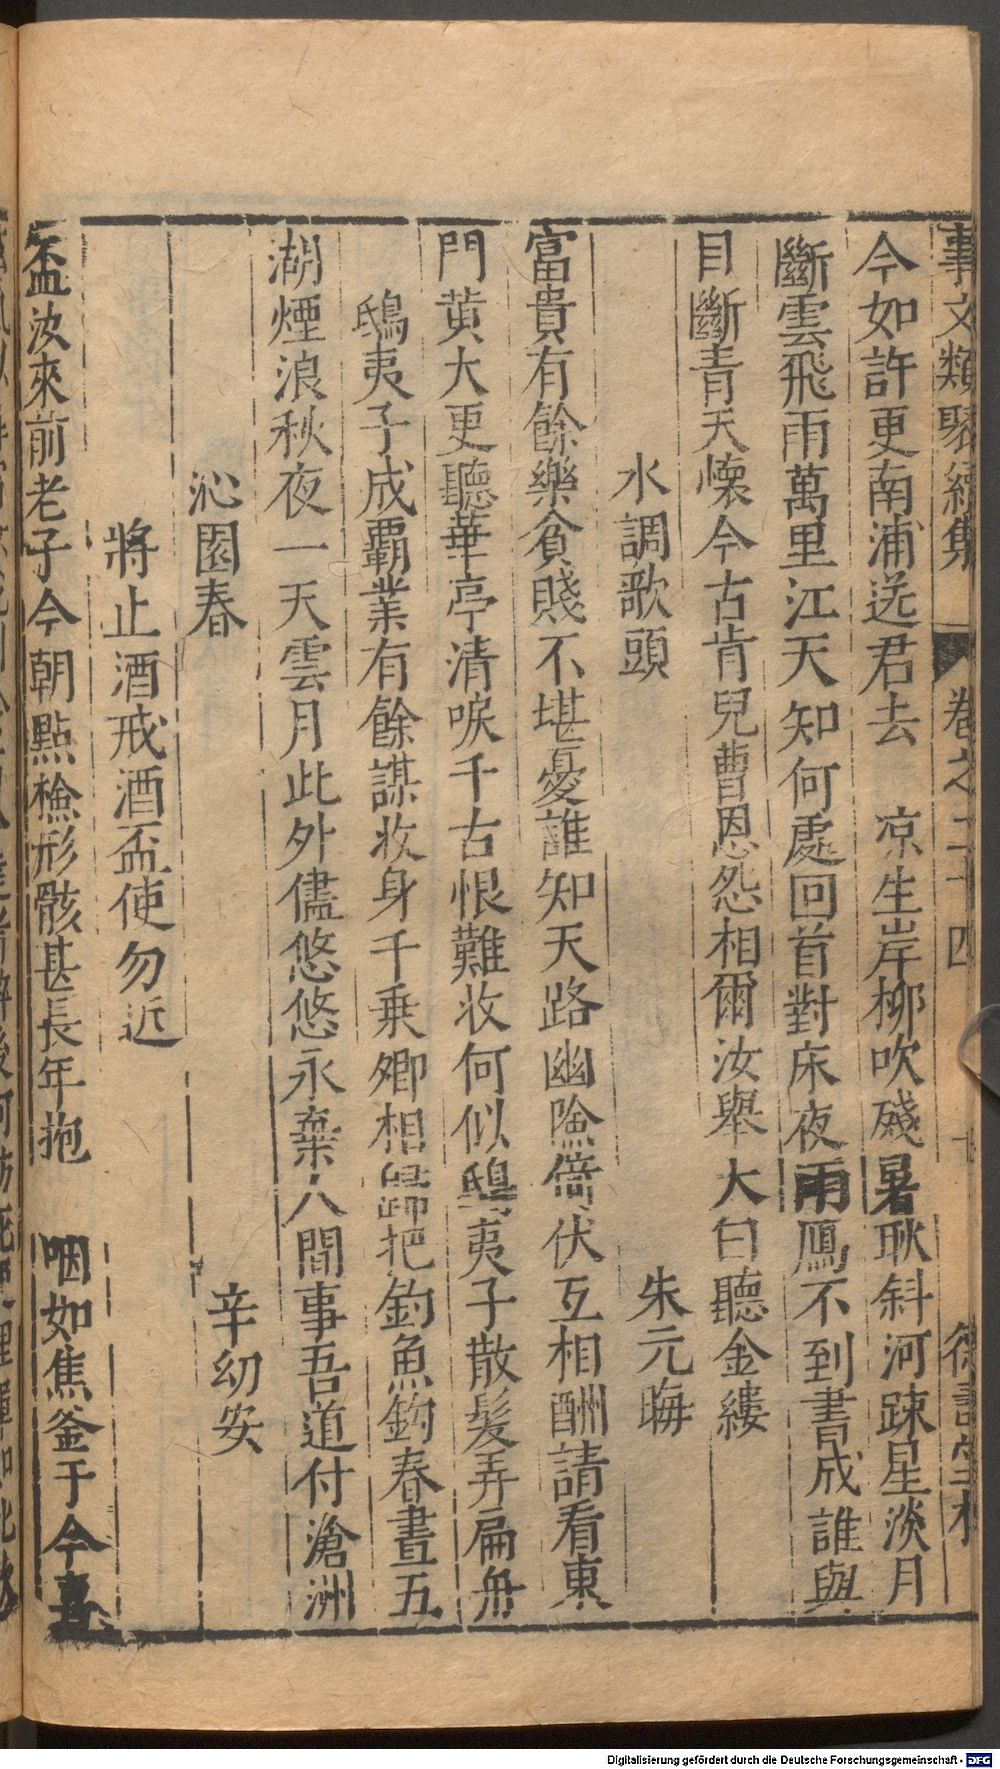 事文類聚續集 卷之二十四
今如許更南浦送君去 凉生岸柳吹殘暑耿斜河疎星淡月
斷雲飛雨萬里江天知何處回首對床夜雨鴈不到書成誰與
目斷青天懷今古肯兒曹恩怨相爾汝舉大白聽金縷
水調歌頭 朱元晦
富貴有餘樂貧賤不堪憂誰知天路幽險倚伏互相酬請看東
門黃犬更聽華亭清唳千古恨難收何似鴟夷子散髮弄扁舟
鴟夷子成覇業有餘謀收身千乗卿相歸把釣魚鈎春晝五
湖煙浪秋夜一天雲月此外儘悠悠永棄人間事吾道付滄洲
沁園春 辛幼安
將止酒戒酒盃使勿近
盃汝來前老子今朝點檢形骸甚長年抱 咽如焦釜于今喜
Digitalisierung gefördert durch die Deutsche Forschungsgemeinschaft - DFG